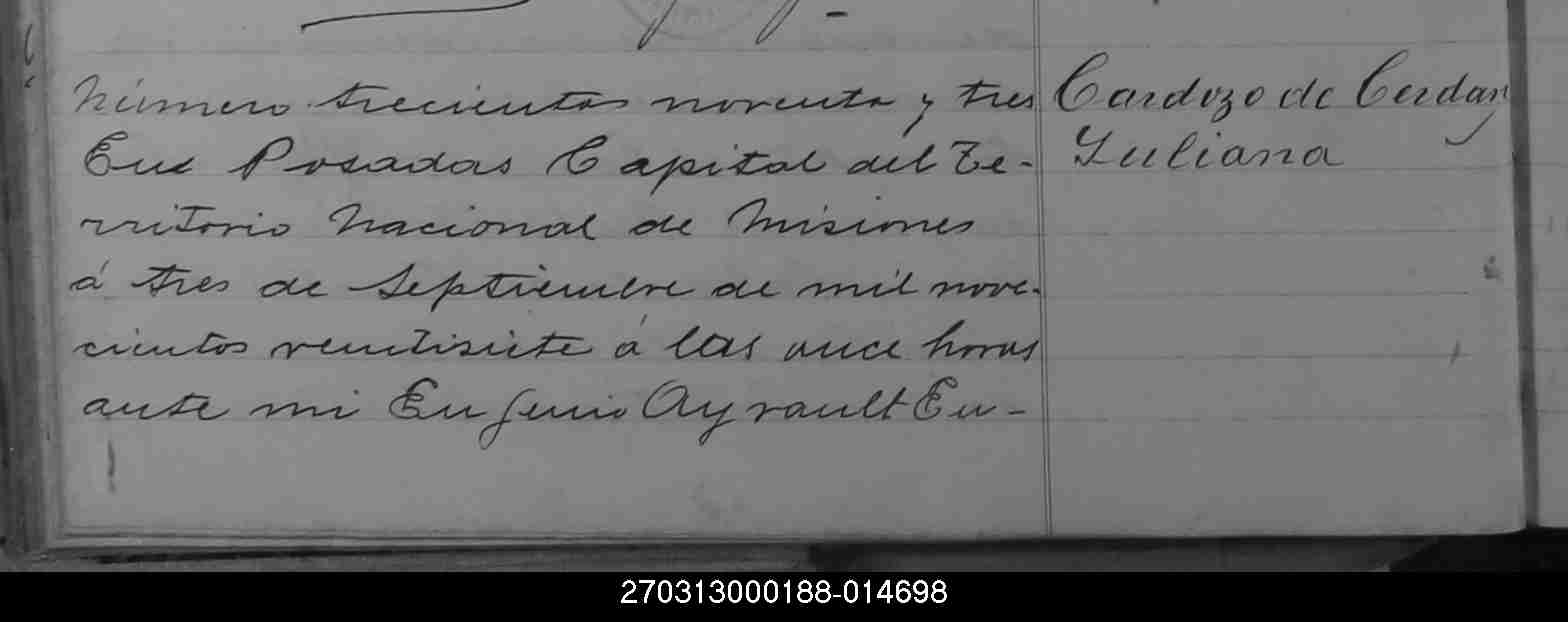 Número trecientos noventa y tres
En Posadas Capital del Te-
rritorio Nacional de Misiones
á tres de Septiembre de mil nove-
cientos veintisiete á las once horas
ante mi Eugenio Ayrault En-
Cardozo de Cerdan
Juliana
270313000188-014698